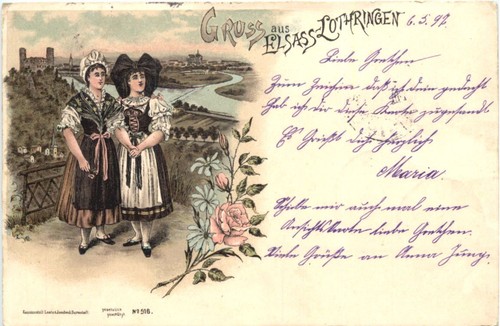 Gruss aus
Elsass-Lothringen
6.5.98.
Liebe Gretchen.
Zum Zeichen daß ich Dein gedacht
hab ich dir diese Karte zugesandt
Es Grüßt dich herzlich
Maria.
Schicke mir auch mal eine
Ansichtskarte liebe Gretchen.
Viele Grüße an Anna Jung.
No 916.